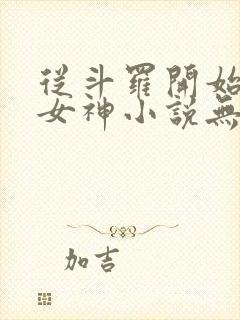 從斗羅開始
女神小説無
加吉